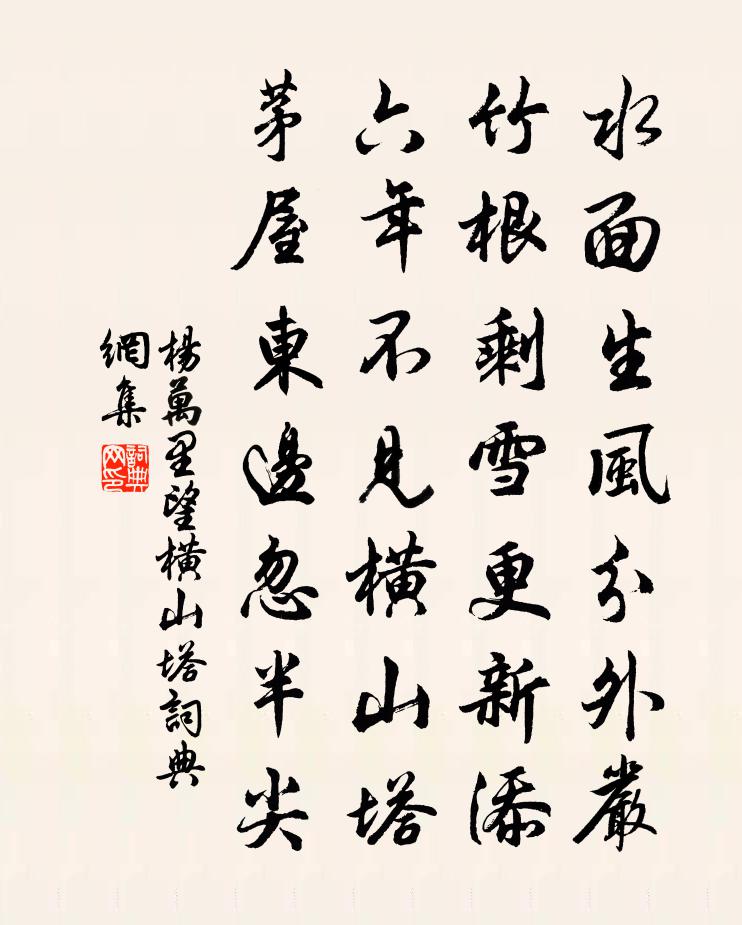 水面生風分外嚴
竹根剩雪更新添
六年不見橫山塔
茅屋東邊忽半尖
楊萬里望橫山塔詞典
網集
詞典
网印